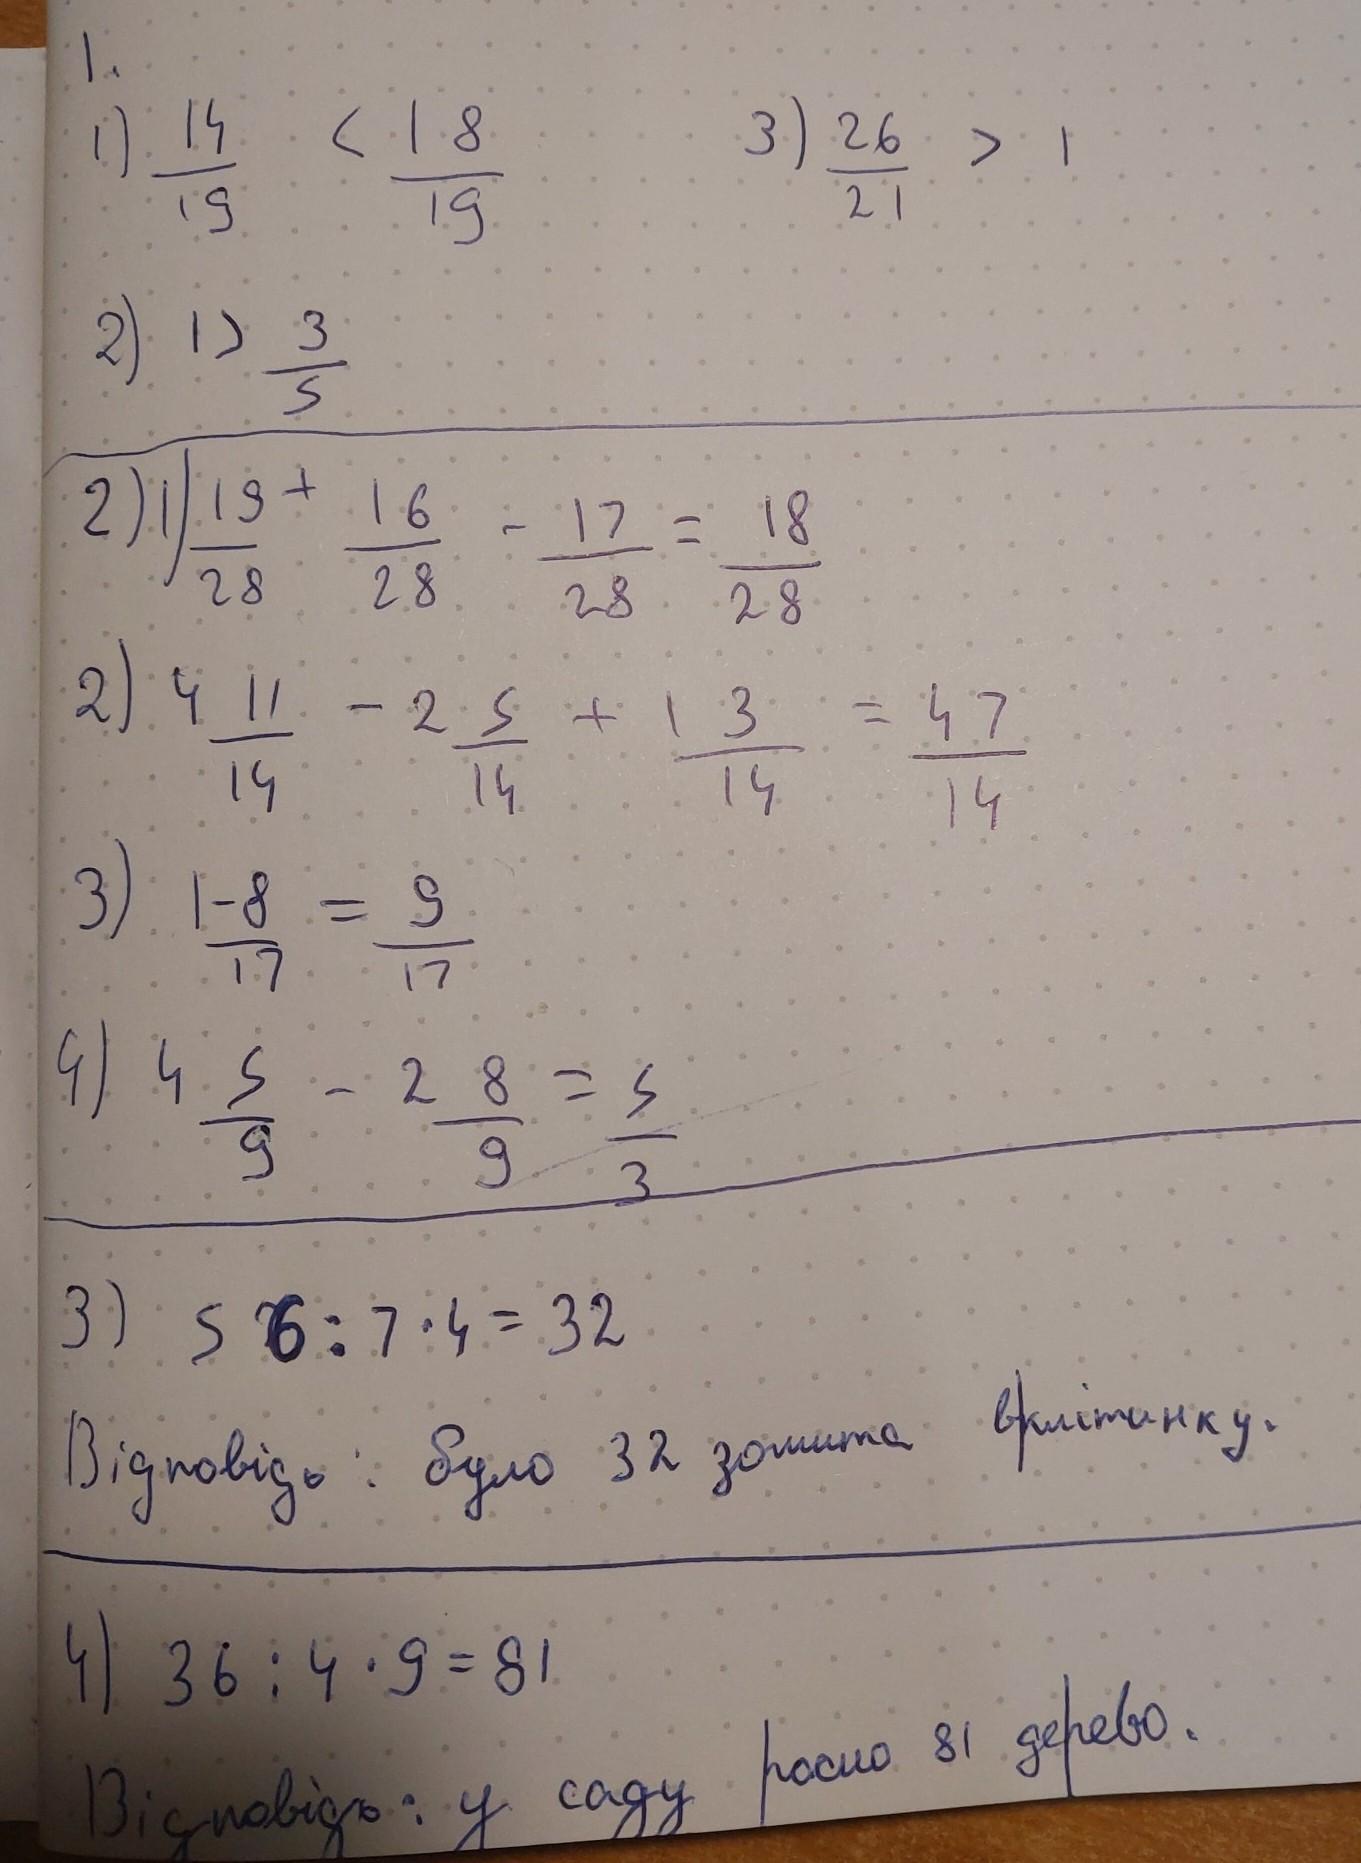 1.
1) 14/19 < 18/19 3) 26/21 > 1
2) 1 > 3/5
2) 1) 19/28 + 16/28 - 17/28 = 18/28
2) 4 11/14 - 2 5/14 + 1 3/14 = 47/14
3) 1-8/17 = 9/17
4) 4 5/9 - 2 8/9 = 5/3
3) 56 : 7 · 4 = 32
Відповідь: було 32 зошита в клітинку.
4) 36 : 4 · 9 = 81
Відповідь: у саду росло 81 дерево.